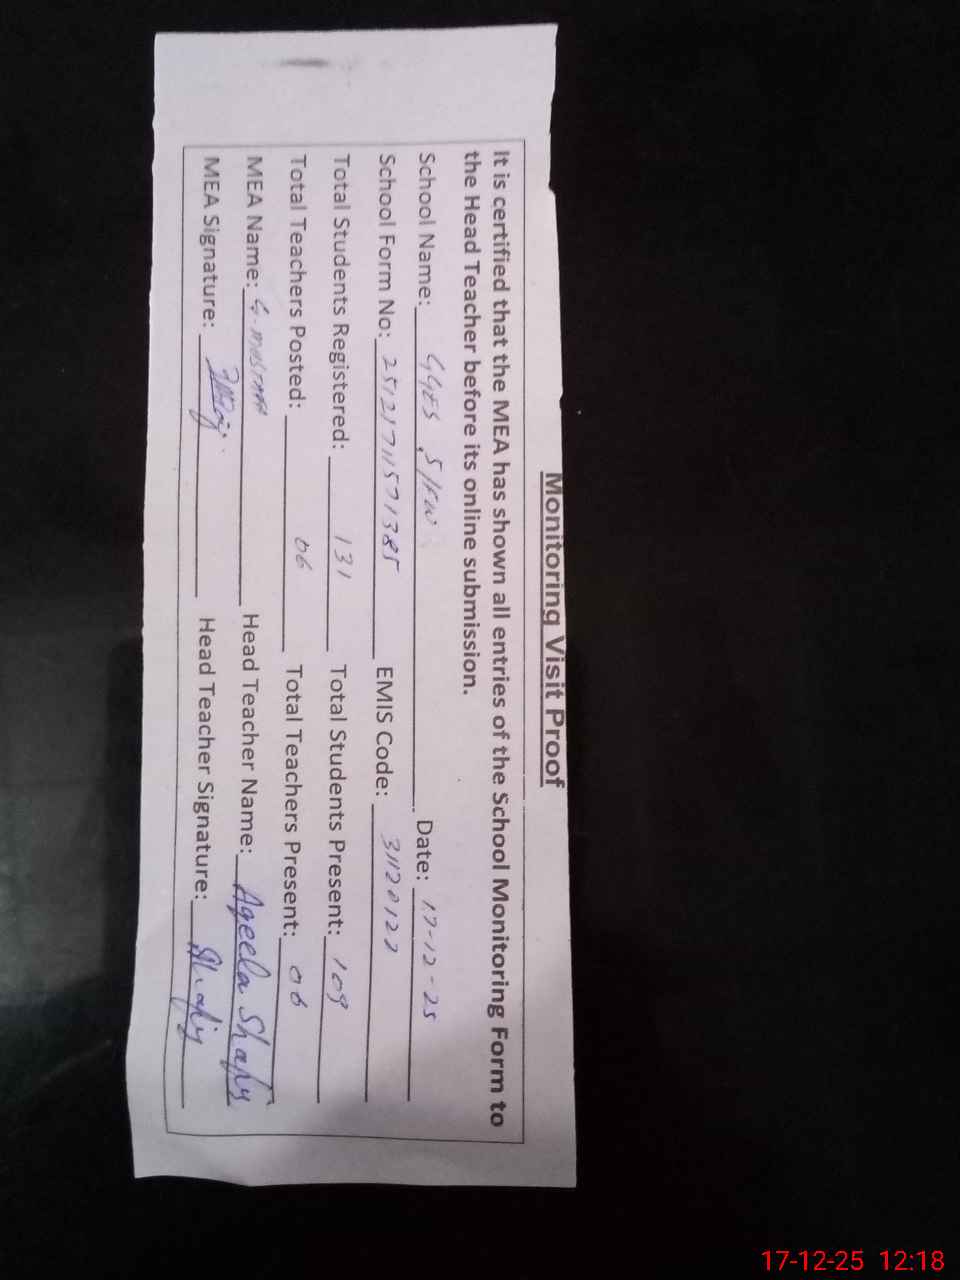 Monitoring Visit Proof
It is certified that the MEA has shown all entries of the School Monitoring Form to
the Head Teacher before its online submission.
School Name: GGES Date: 17-12-25
School Form No: EMIS Code:
Total Students Registered: 131 Total Students Present: 109
Total Teachers Posted: 06 Total Teachers Present: 06
MEA Name: G. Mustafa Head Teacher Name: Aqeela Shafiq
MEA Signature: Head Teacher Signature:
17-12-25 12:18